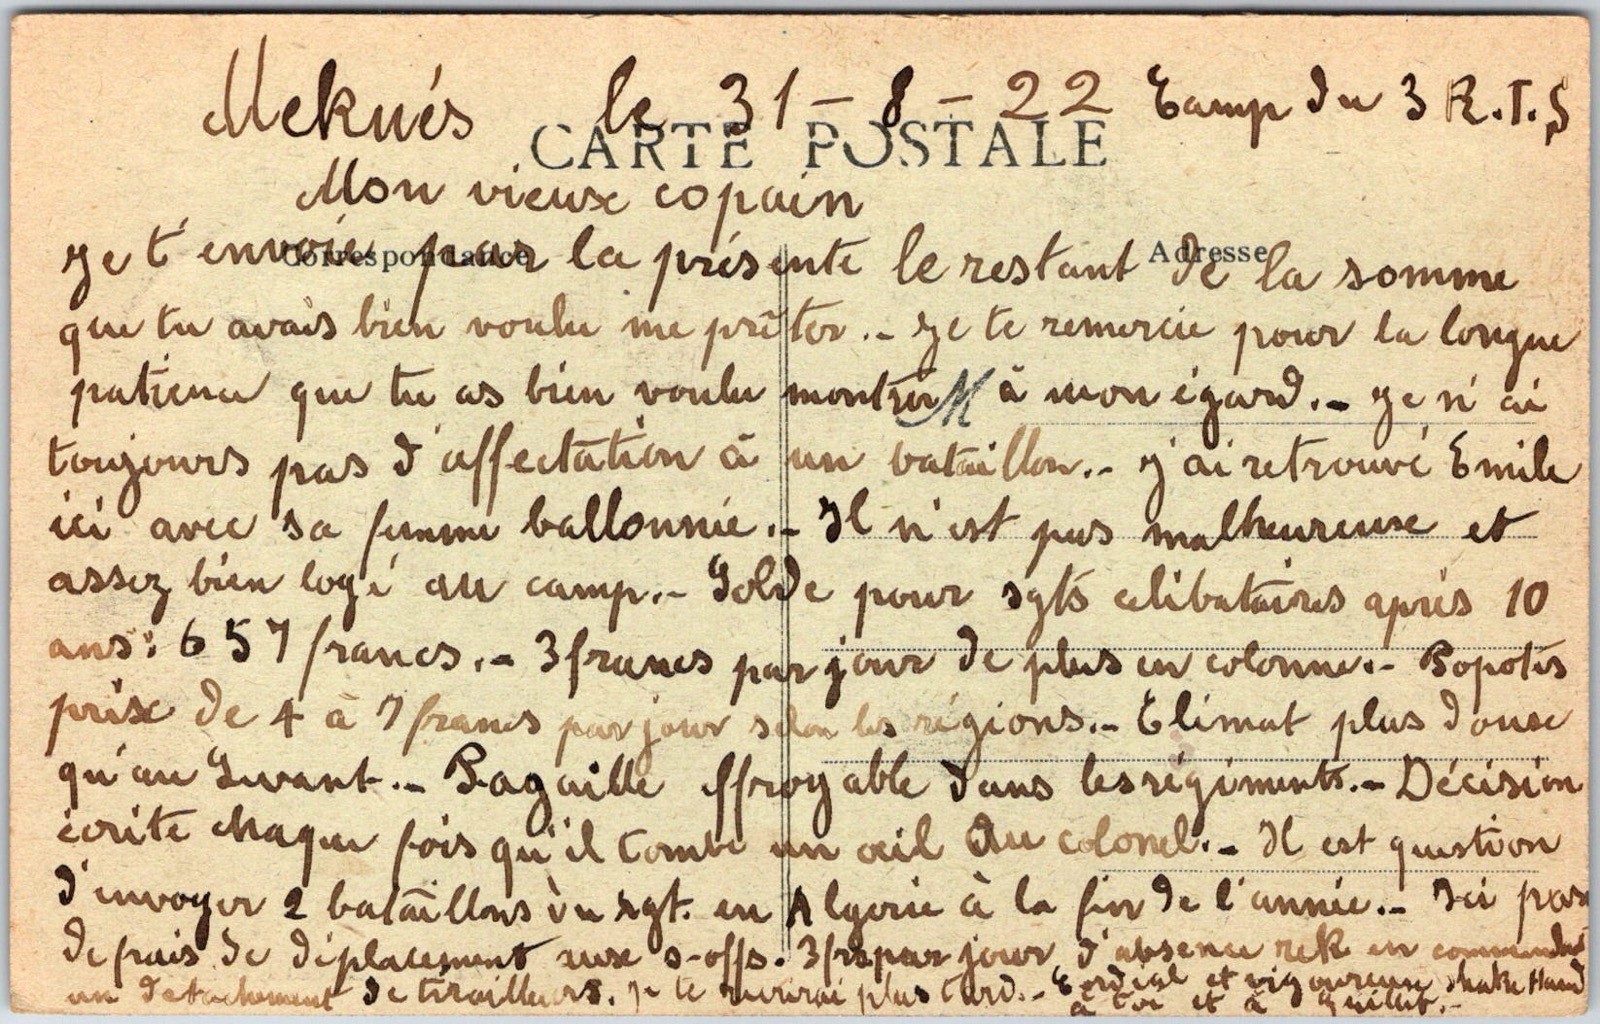 Meknés le 31-8-22 Camp du 3 R.T.S
CARTE POSTALE
Mon vieux copain
Correspondance Adresse
Je t'envoie par la présente le restant de la somme
que tu avais bien voulu me prêter.- Je te remercie pour la longue
patience que tu as bien voulu montrer à mon égard.- Je n'ai
toujours pas d'affectation à un bataillon.- J'ai retrouvé Emile
ici avec sa femme ballonnée.- Il n'est pas malheureux et
assez bien logé au camp.- Solde pour sgts célibataires après 10
ans: 657 francs.- 3 francs par jour de plus en colonne.- Popotes
prix de 4 à 7 francs par jour selon les régions.- Climat plus doux
qu'au Levant.- Pagaille effroyable dans les régiments.- Décision
écrite chaque fois qu'il tombe un œil au colonel.- Il est question
d'envoyer 2 bataillons du rgt. en Algerie à la fin de l'année.- Ici pas
de frais de déplacement aux s-offs. 3frs par jour d'absence en commandant
un détachement de tirailleurs. Je te plus tard.- Cordial et vigoureux shake Hand
à toi et à